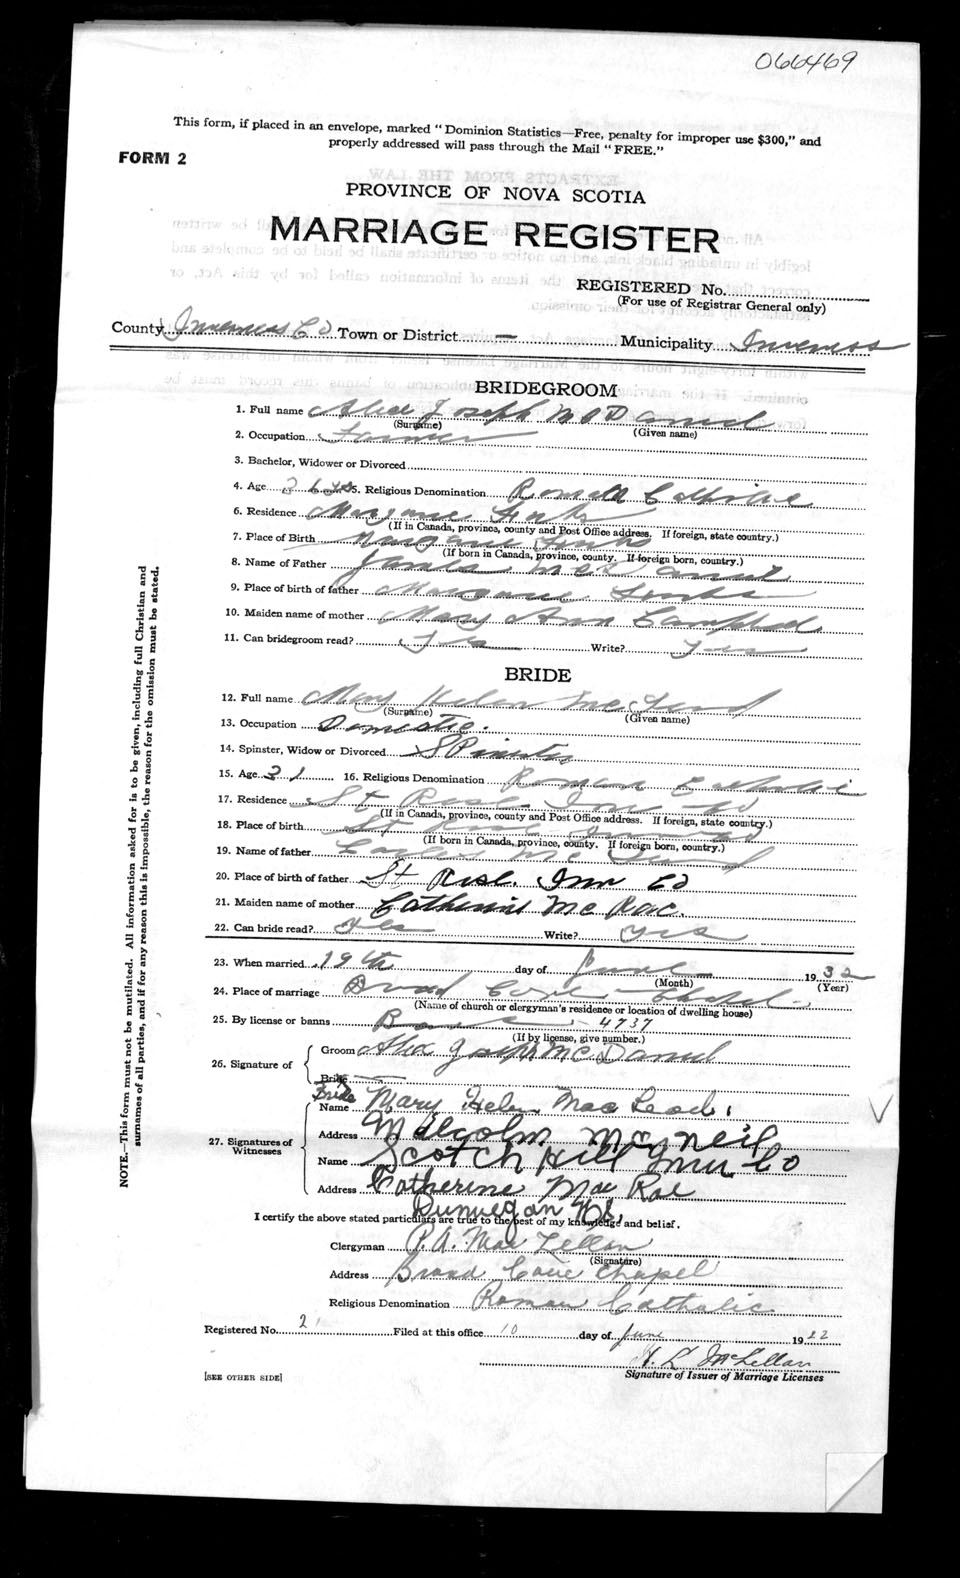 066469
This form, if placed in an envelope, marked "Dominion Statistics—Free, penalty for improper use $300," and
properly addressed will pass through the Mail "FREE."
FORM 2
PROVINCE OF NOVA SCOTIA
MARRIAGE REGISTER
REGISTERED No.
(For use of Registrar General only)
County Inverness Co Town or District — Municipality Inverness
BRIDEGROOM
1. Full name Alex Joseph McDaniel
(Surname) (Given name)
2. Occupation Farmer
3. Bachelor, Widower or Divorced
4. Age 5. Religious Denomination Roman Catholic
6. Residence Margaree Forks
(If in Canada, province, county and Post Office address. If foreign, state country.)
7. Place of Birth Margaree Forks
(If born in Canada, province, county. If foreign born, country.)
8. Name of Father James McDaniel
9. Place of birth of father Margaree Forks
10. Maiden name of mother Mary Ann Campbell
11. Can bridegroom read? Yes Write? Yes
BRIDE
12. Full name Mary Helen McLeod
(Surname) (Given name)
13. Occupation Domestic.
14. Spinster, Widow or Divorced Spinster
15. Age 31 16. Religious Denomination Roman Catholic
17. Residence St Rose Inv Co
(If in Canada, province, county and Post Office address. If foreign, state country.)
18. Place of birth St Rose
(If born in Canada, province, county. If foreign born, country.)
19. Name of father McLeod
20. Place of birth of father St Rose. Inv Co
21. Maiden name of mother Catherine McRae.
22. Can bride read? Yes Write? Yes
23. When married 19th day of June 1932
(Month) (Year)
24. Place of marriage Broad Cove Chapel
(Name of church or clergyman's residence or location of dwelling house)
25. By license or banns 4737
(If by license, give number.)
26. Signature of Groom Alex Joseph McDaniel
Bride
Bride Mary Helen MacLeod
27. Signatures of Witnesses Name
Address Malcolm MacNeil
Name Scotch Hill Inv Co
Address Catherine MacRae
Dunvegan N.S.
I certify the above stated particulars are true to the best of my knowledge and belief.
Clergyman P.A. MacLellan
(Signature)
Address Broad Cove Chapel
Religious Denomination Roman Catholic
Registered No. 2 Filed at this office 10 day of June 19
McLellan
[SEE OTHER SIDE] Signature of Issuer of Marriage Licenses
NOTE.—This form must not be mutilated. All information asked for is to be given, including full Christian and
surnames of all parties, and if for any reason this is impossible, the reason for the omission must be stated.